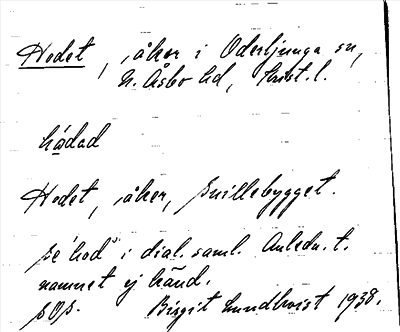 Hodet, åker i Oderljunga sn,
N. Åsbo hd, Krist. l.
hådad
Hodet, åker,
se "hod" i dial. saml. Anledn. t.
namnet ej känd.
Birgit Lundkvist 1938.